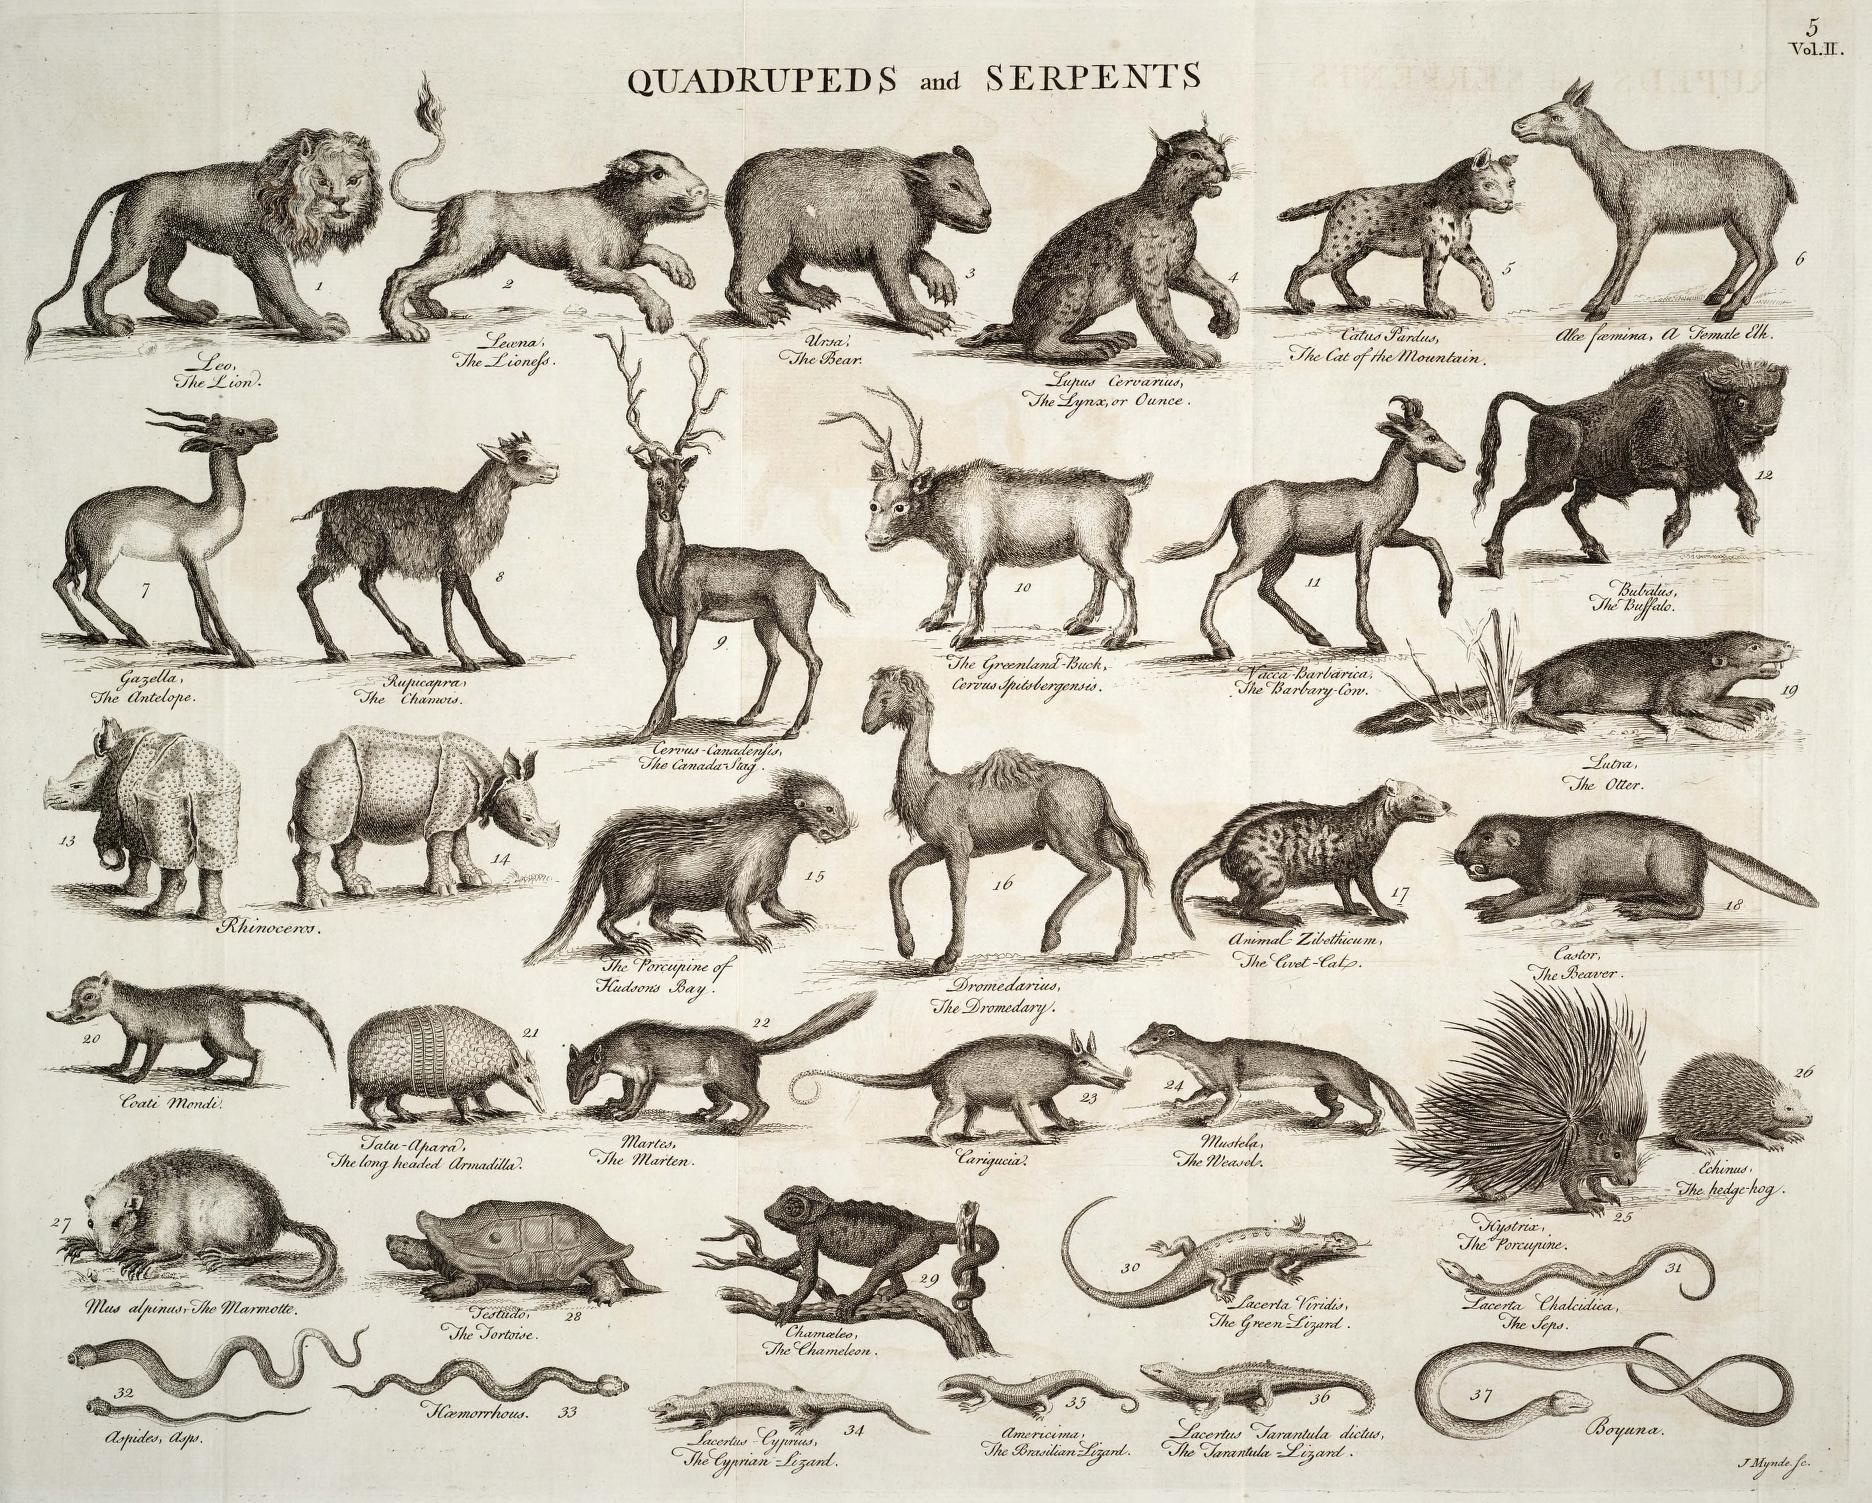 5
Vol.II.
QUADRUPEDS and SERPENTS
1
Leo,
The Lion.
2
Leæna,
The Lioness.
3
Ursa,
The Bear.
4
Lupus Cervarius,
The Lynx, or Ounce.
5
Catus Pardus,
The Cat of the Mountain.
6
Alce fæmina, A Female Elk.
7
Gazella,
The Antelope.
8
Rupicapra,
The Chamois.
9
Cervus-Canadensis,
The Canada-Stag.
10
The Greenland-Buck,
Cervus Spitsbergensis.
11
Vacca-Barbarica,
The Barbary-Cow.
12
Bubalus,
The Buffalo.
19
Lutra,
The Otter.
13
14
Rhinoceros.
15
The Porcupine of
Hudson's Bay.
16
Dromedarius,
The Dromedary.
17
Animal Zibethicum,
The Civet-Cat.
18
Castor,
The Beaver.
20
Coati Mondi.
21
Tatu-Apara,
The long headed Armadilla.
22
Martes,
The Marten.
23
Carigueia.
24
Mustela,
The Weasel.
25
Hystrix,
The Porcupine.
26
Echinus,
The hedge-hog.
27
Mus alpinus, The Marmotte.
28
Testudo,
The Tortoise.
29
Chamæleo,
The Chameleon.
30
Lacerta Viridis,
The Green-Lizard.
31
Lacerta Chalcidica,
The Seps.
32
Aspides, Asps.
Hæmorrhous. 33
34
Lacertus-Cyprius,
The Cyprian-Lizard.
35
Americima,
The Brasilian-Lizard.
36
Lacertus Tarantula dictus,
The Tarantula-Lizard.
37
Boyuna.
J Mynde sc.